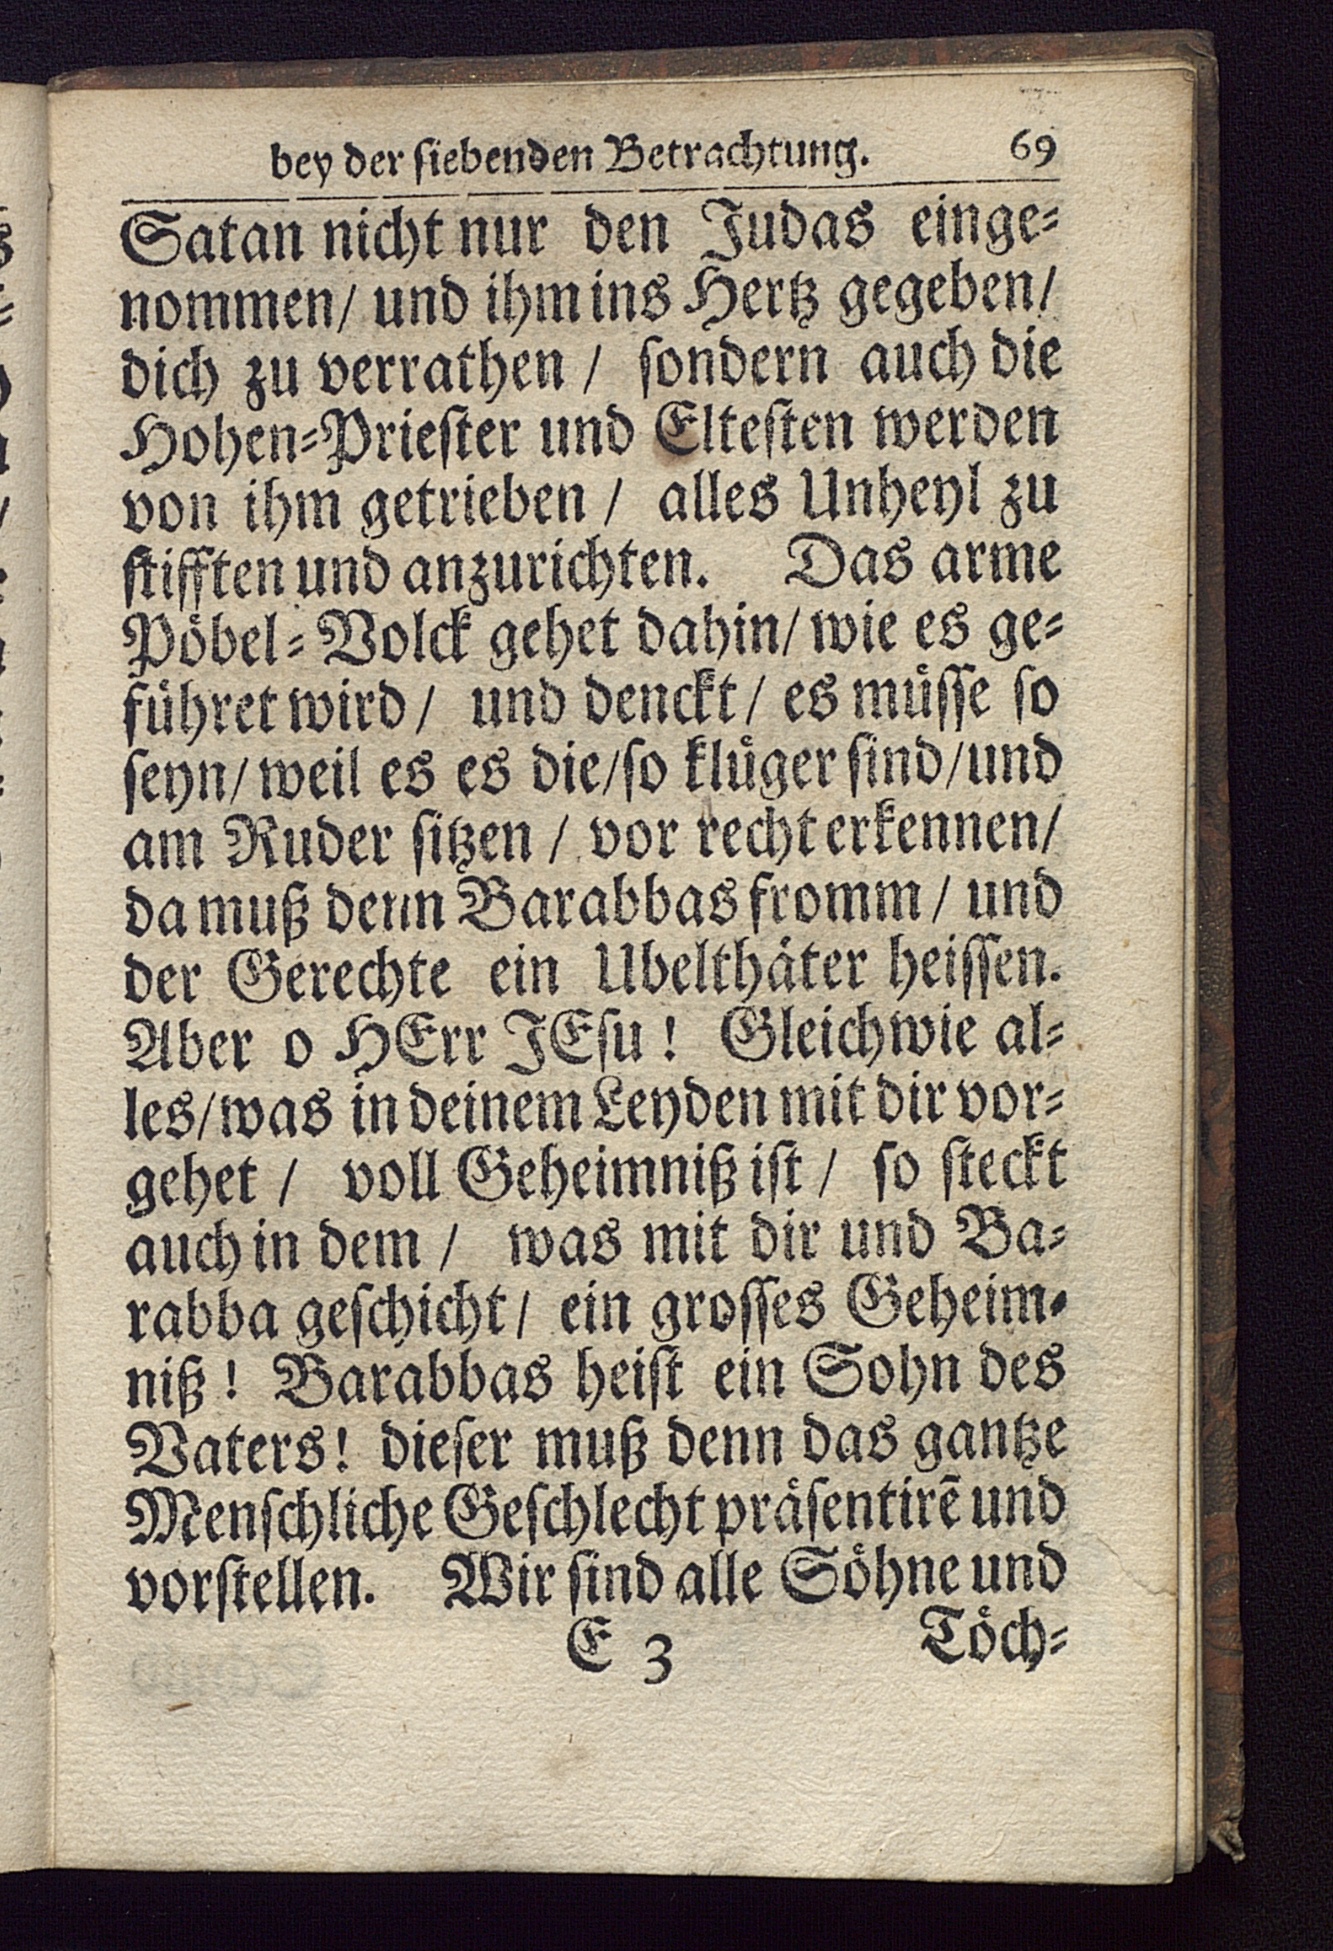 bey der siebenden Betrachtung. 69
Satan nicht nur den Judas einge-
nommen/ und ihm ins Hertz gegeben/
dich zu verrathen / sondern auch die
Hohen-Priester und Eltesten werden
von ihm getrieben / alles Unheyl zu
stifften und anzurichten. Das arme
Pöbel-Volck gehet dahin/ wie es ge-
führet wird / und denckt / es müsse so
seyn/ weil es es die/so klüger sind/und
am Ruder sitzen / vor recht erkennen/
da muß denn Barabbas fromm / und
der Gerechte ein Ubelthäter heissen.
Aber o HErr JEsu! Gleichwie al-
les/was in deinem Leyden mit dir vor-
gehet / voll Geheimniß ist / so steckt
auch in dem / was mit dir und Ba-
rabba geschicht/ ein grosses Geheim-
niß! Barabbas heist ein Sohn des
Vaters! dieser muß denn das gantze
Menschliche Geschlecht präsentirē und
vorstellen. Wir sind alle Söhne und
E 3 Töch-